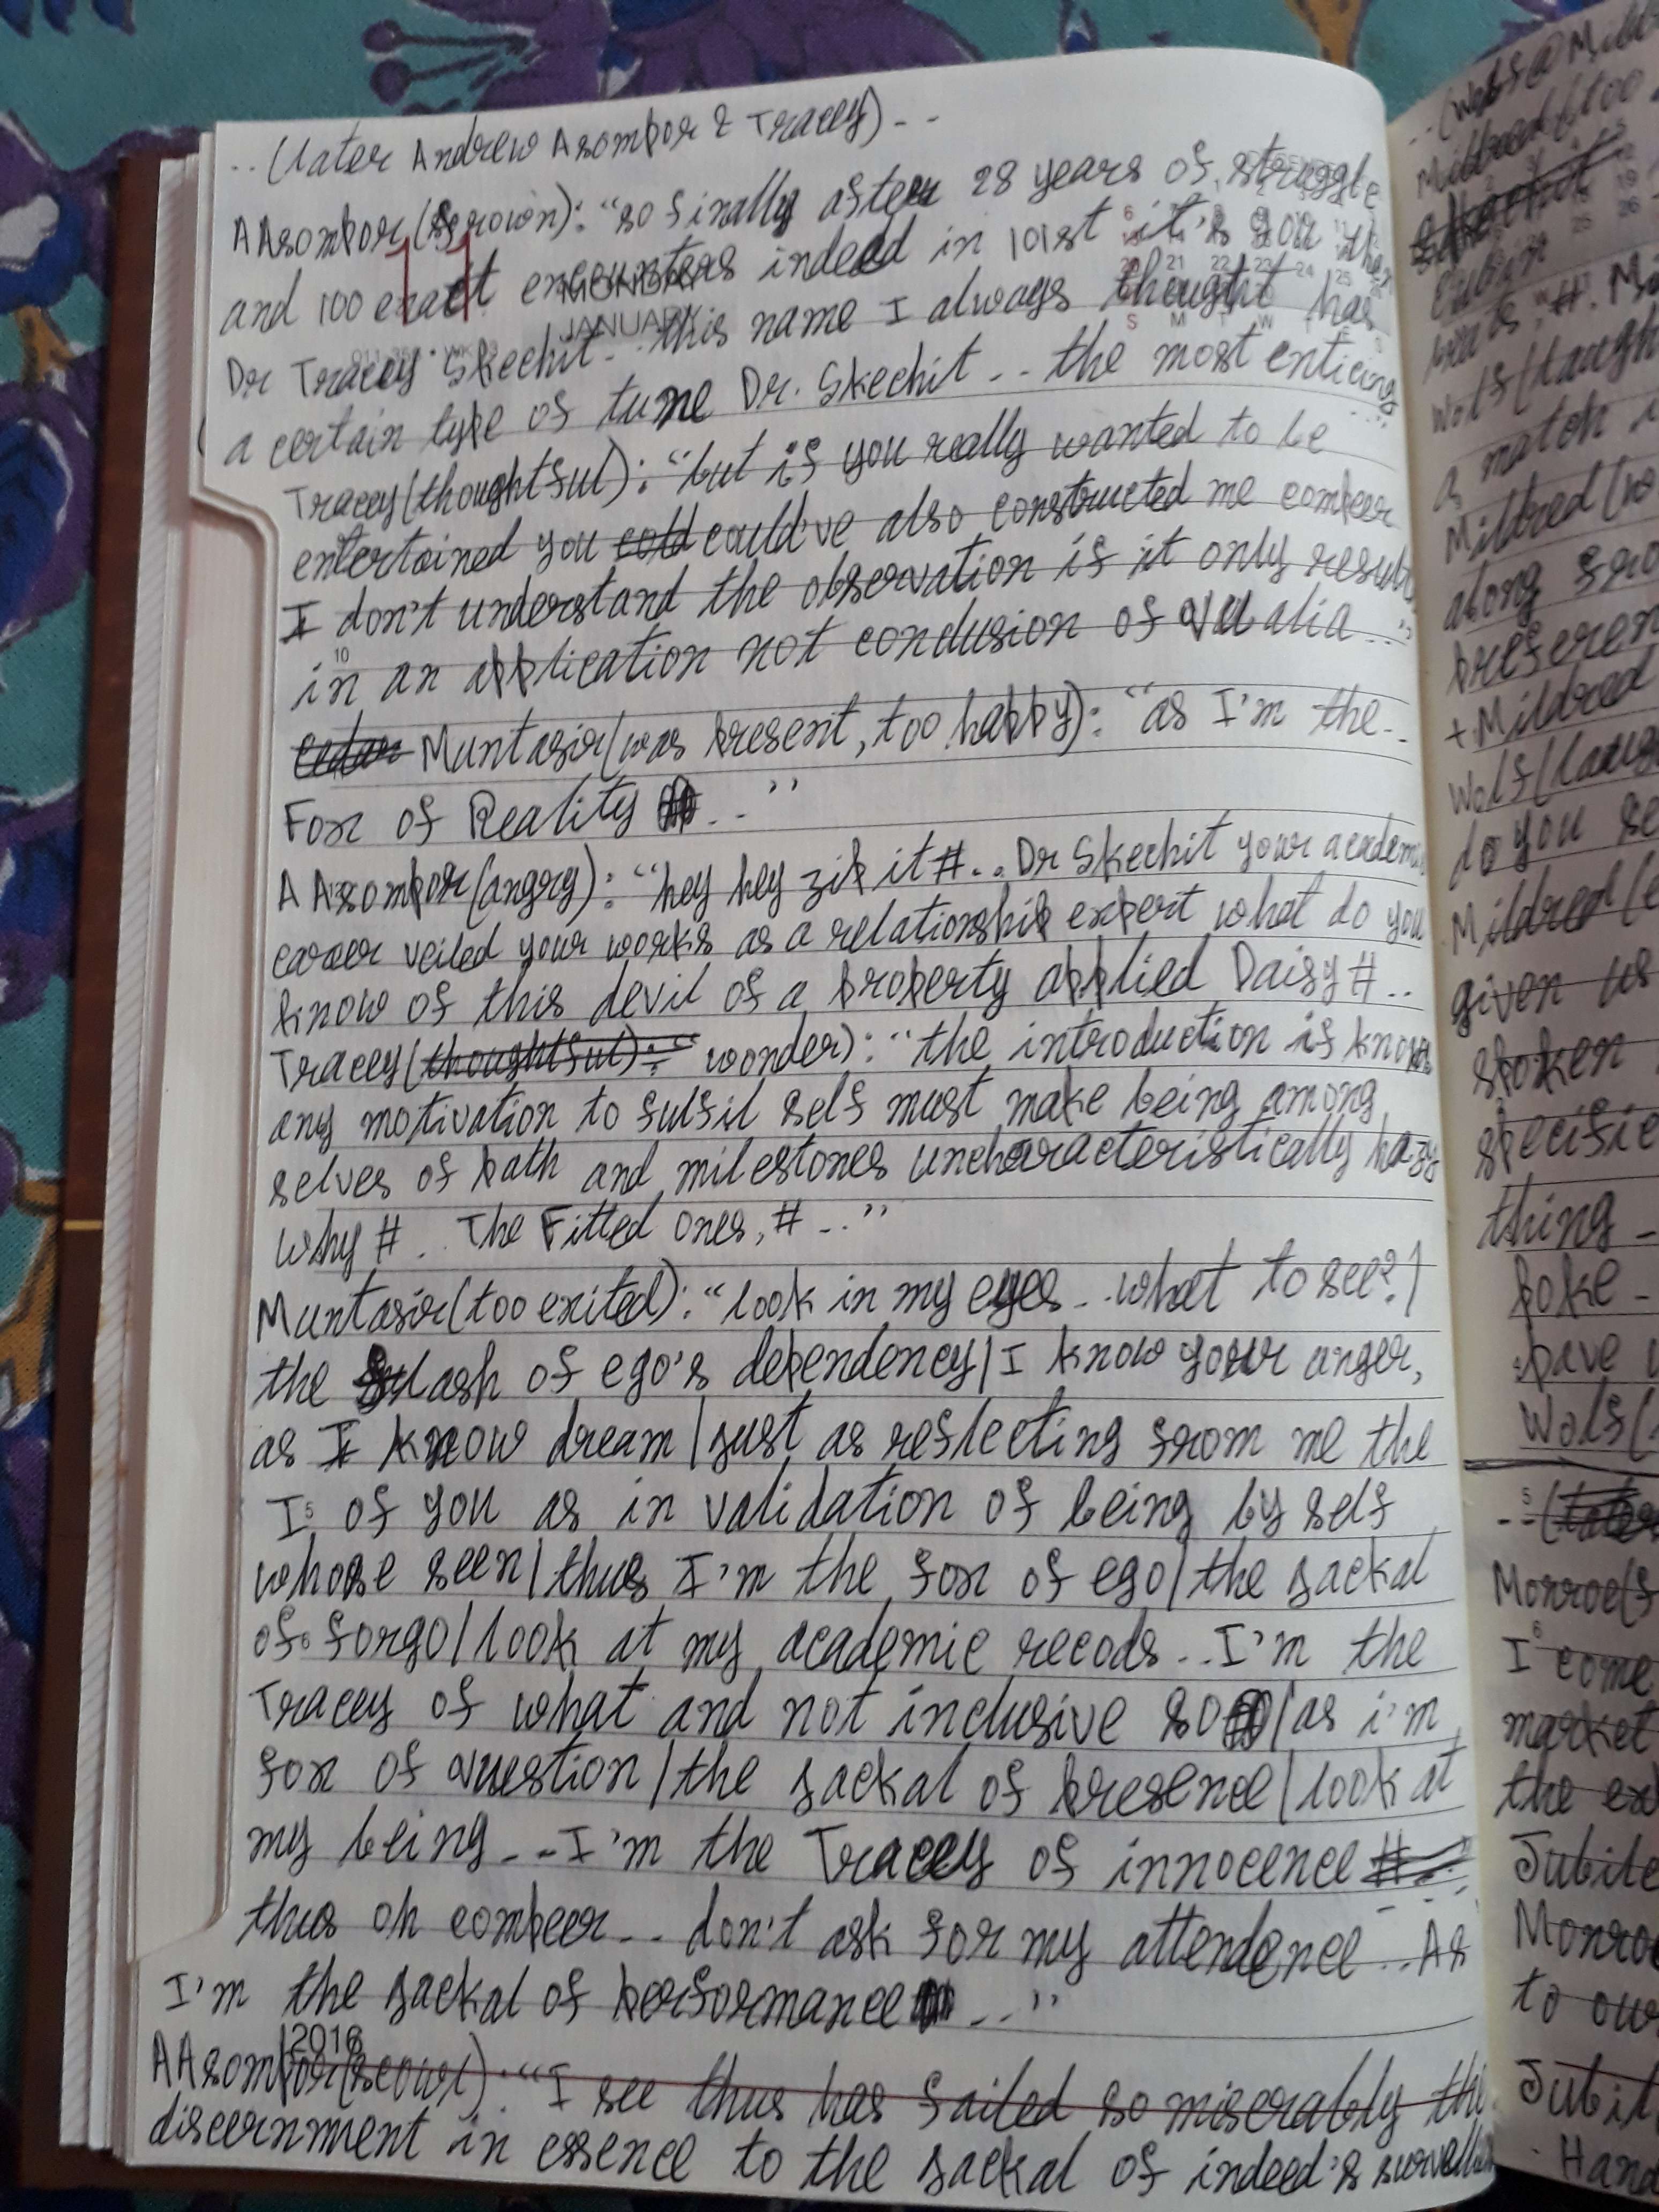 ..(later Andrew Asompor & Tracey)--
AAsompor(frown): "so finally after 28 years of struggle
and 100 exact encounters indeed in 101st it's you then
Dr Tracey Skechit.. this name I always thought has
a certain type of tune Dr. Skechit.. the most enticing
Tracey(thoughtful): "but if you really wanted to be
entertained you could've also constructed me compeer
I don't understand the observation if it only results
in an application not conclusion of qualia.."
Muntasir(was present, too happy): "as I'm the..
Fox of Reality .."
AAsompor(angry): "hey hey zip it #.. Dr Skechit your academic
career veiled your works as a relationship expert what do you
know of this devil of a property applied Daisy #..
Tracey( wonder): "the introduction if known
any motivation to fulfil self must make being among
selves of path and milestones uncharacteristically hazy
why #.. The Fitted Ones, # .."
Muntasir(too exited): "look in my eyes..what to see?/
the lash of ego's dependency/I know your anger,
as I know dream/just as reflecting from me the
I of you as in validation of being by self
whose seen/thus I'm the fox of ego/the jackal
of forgo/look at my academic recods..I'm the
Tracey of what and not inclusive so/as i'm
fox of question/the jackal of presence/look at
my being..I'm the Tracey of innocence
thus oh compeer.. don't ask for my attendence..As
I'm the jackal of performance .."
2016
AAsompor(scowl): "I see thus has failed so miserably the
discernment in essence to the jackal of indeed's
11
MONDAY
JANUARY
(Wolf@
Mildred(too
Mildred
Wolf(laugh
a match
Mildred(
along
+Mildred
Wolf(laug
do you se
Mildred(e
given us
spoken
specific
thing -
poke -
have
Wolf(
Monroe(
I come
market
the ex
Jubile
Monro
to our
Jubil
Hand